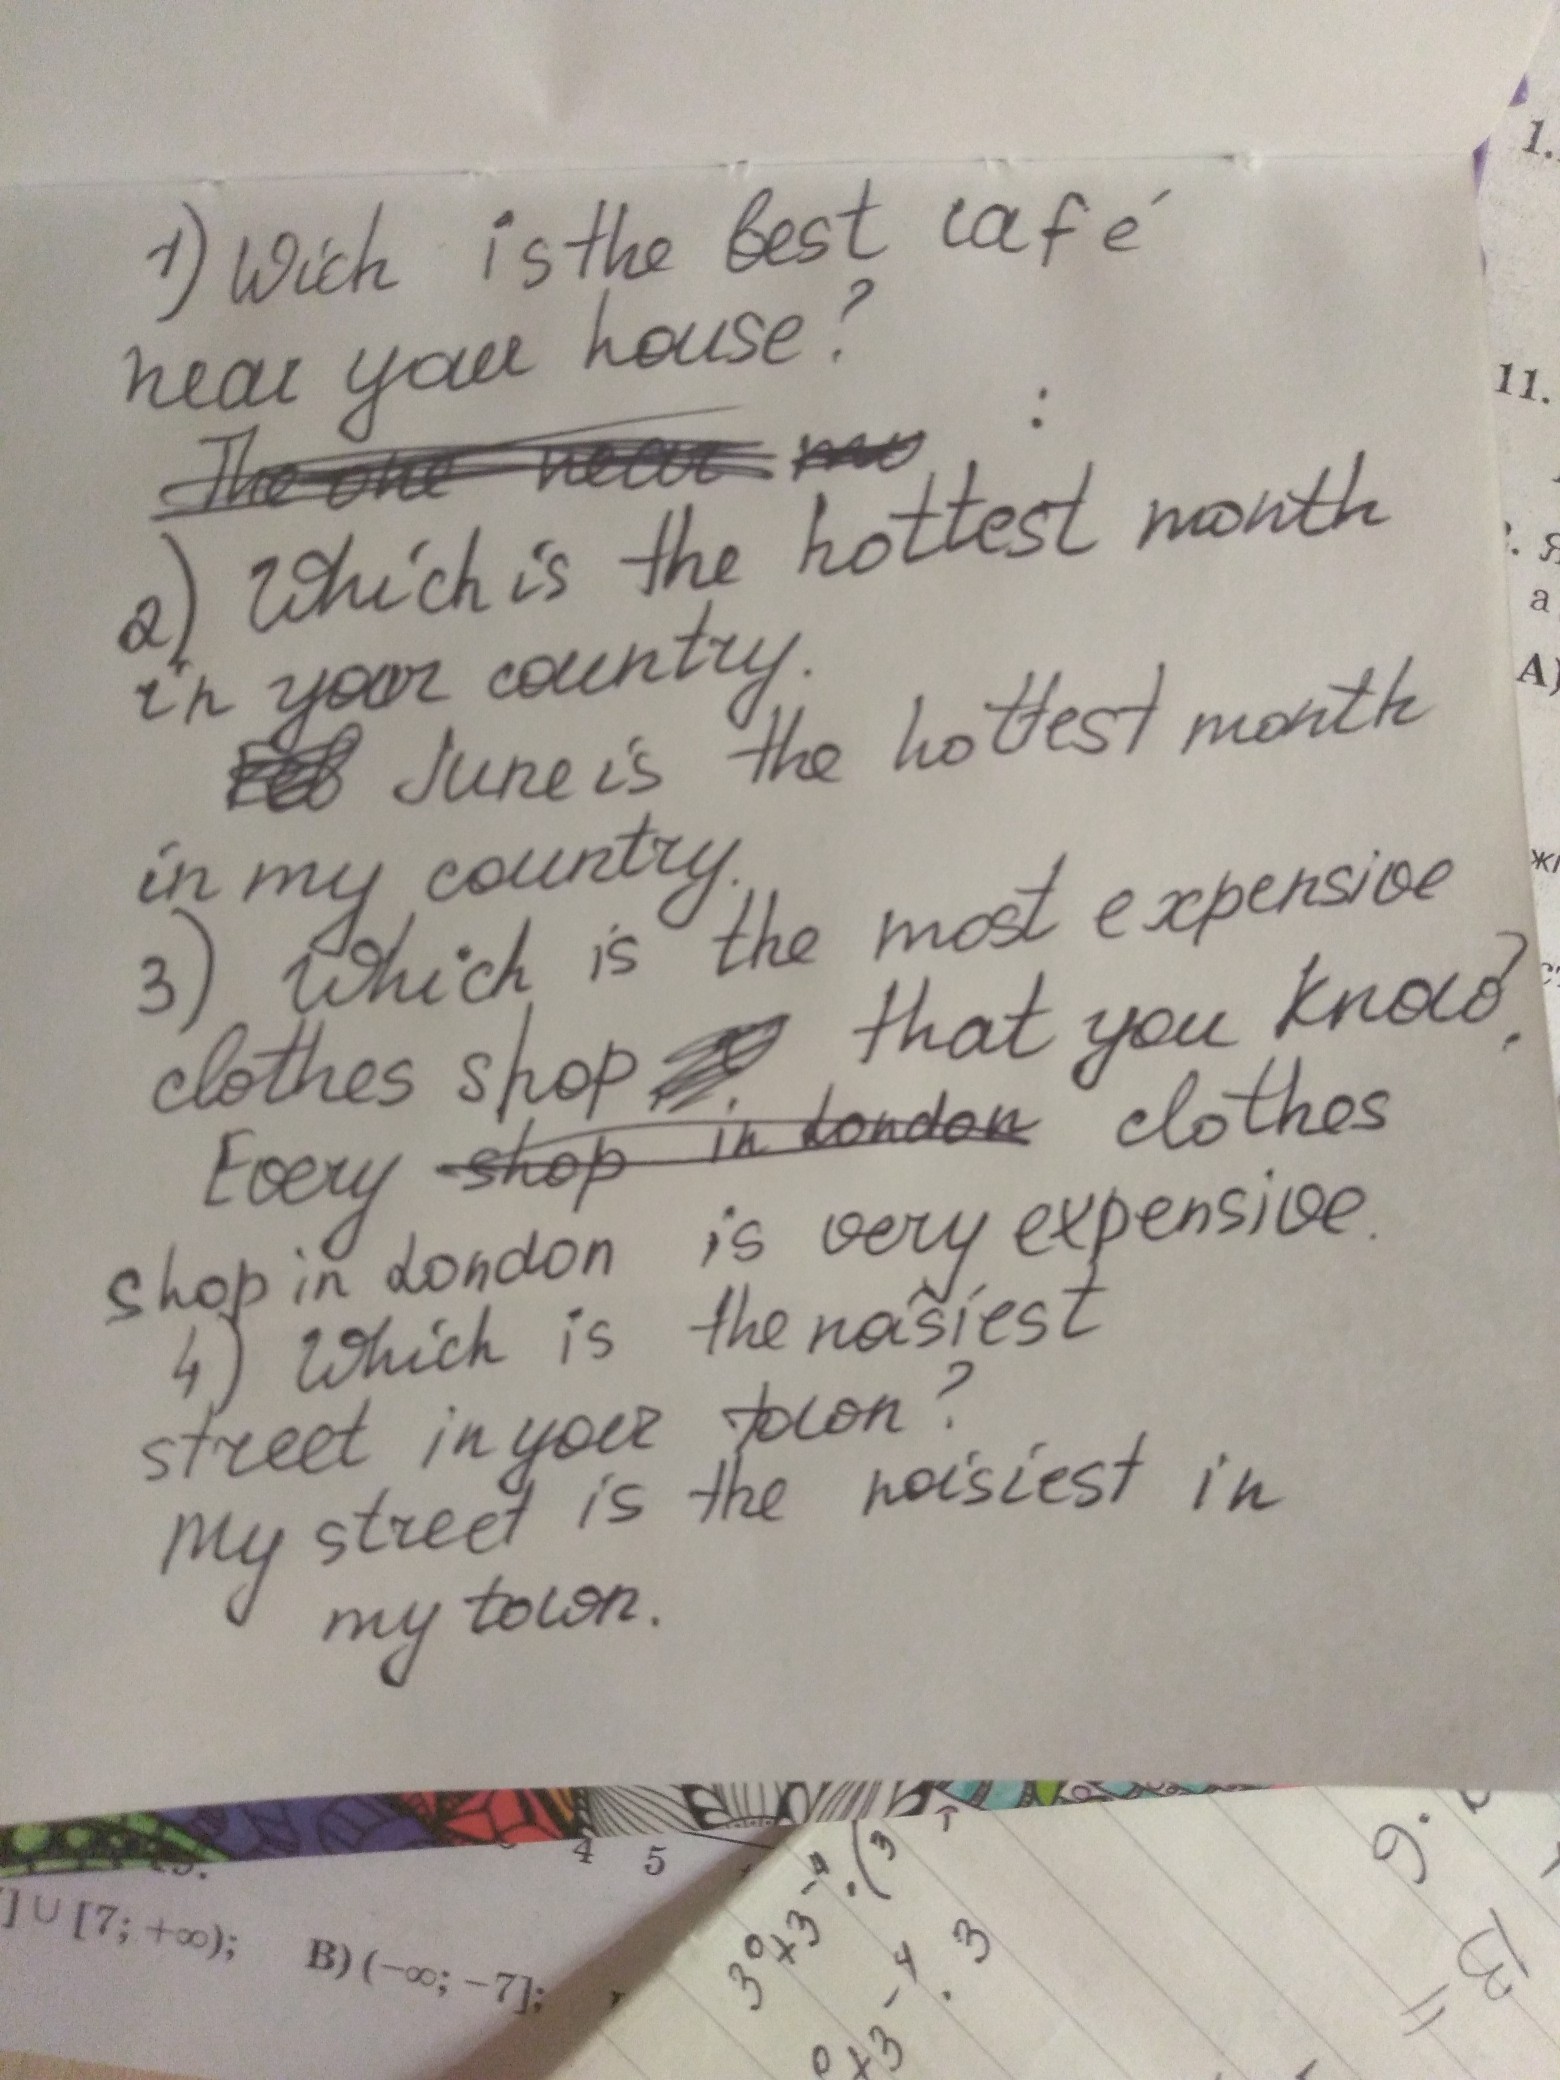 1) Wich is the best café
near your house?
The one near my :
2) Which is the hottest month
in your country.
Feb June is the hottest month
in my country.
3) Which is the most expensive
clothes shop that you know?
Every shop in London clothes
shop in London is very expensive.
4) Which is the noisiest
street in your town?
My street is the noisiest in
my town.
1.
11.
. Я
а
А)
4 5
] ∪ [7; +∞); В) (−∞; −7];
3⁰×3⁻⁴:(3
⁰×3⁻⁴·3
9.
B =